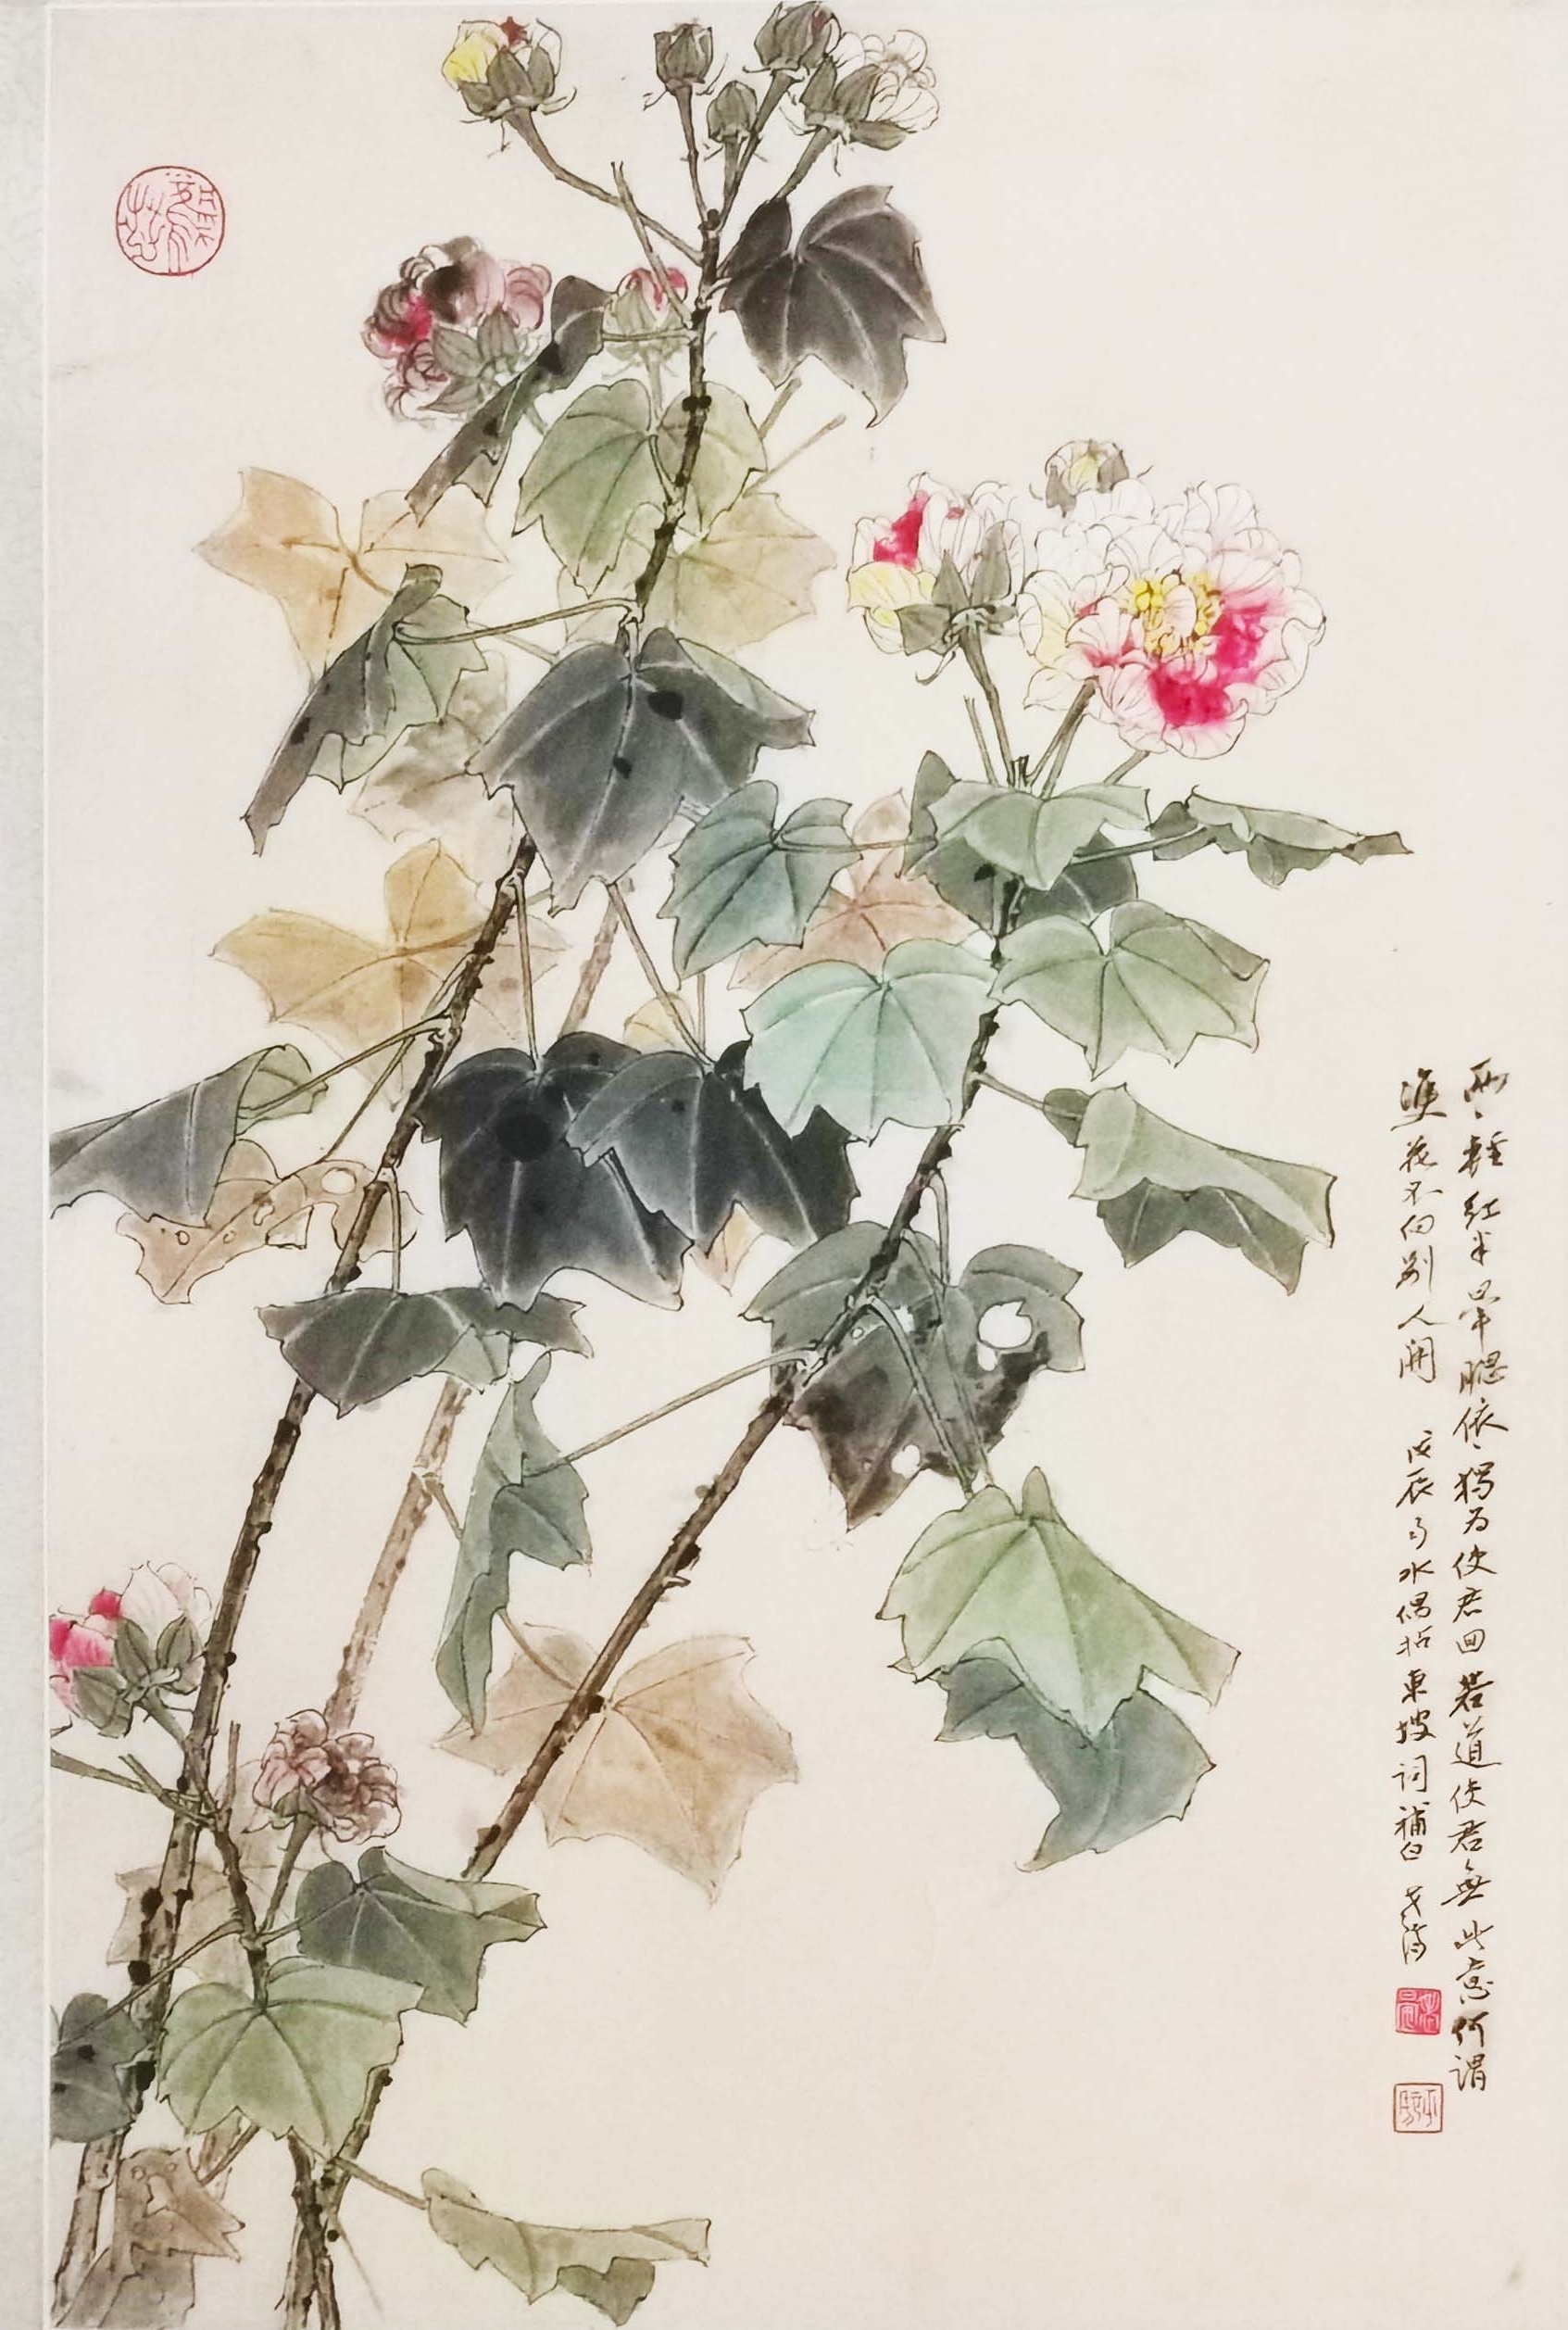 兩〻輕紅半暈腮依〻獨為使君回若道使君無此意何謂
雙花不向别人開 戊辰雨水偶拈東坡詞補白